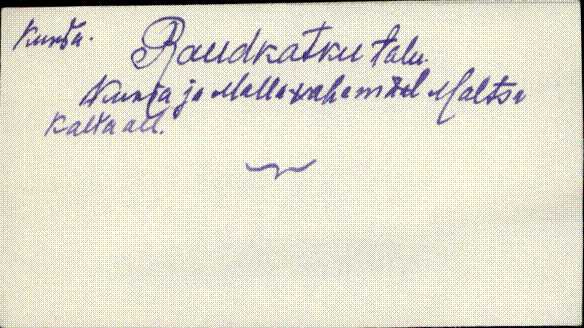 Kunda.
Raudkatku talu.
Kunda ja Malla vahe mäel Maltsa
Kalda all.